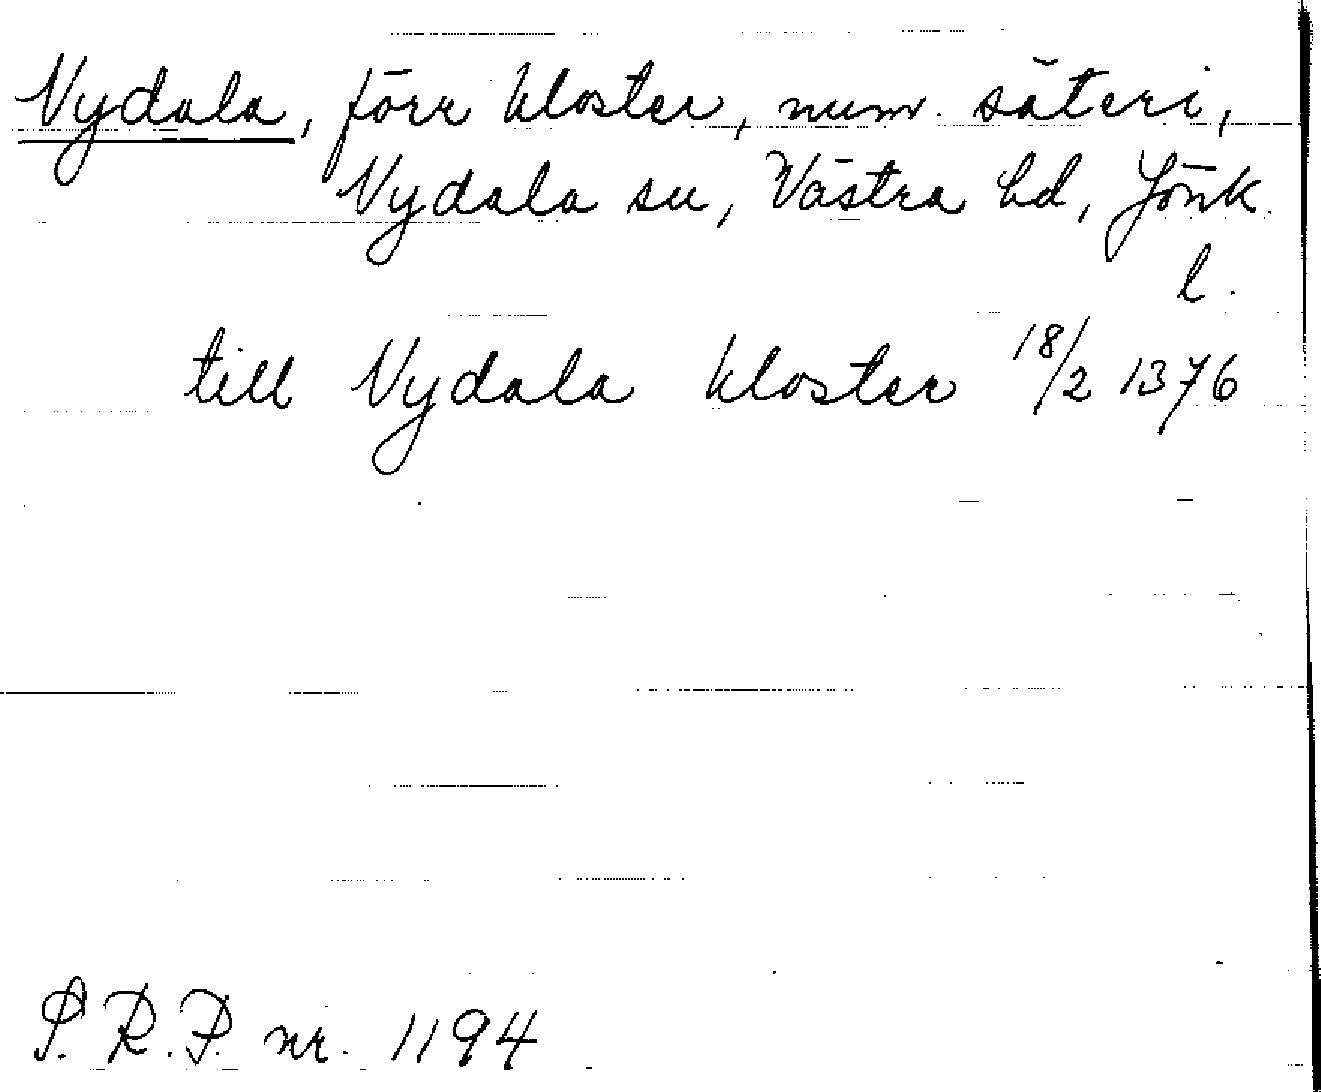 Nydala, förr kloster, num. säteri,
Nydala sn, Västra hd, Jönk.
l.
till Nydala kloster 18/2 1376
S.R.P. nr. 1194